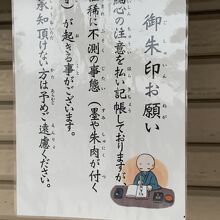 御朱印お願い
細心の注意を払い記帳しておりますが、
稀に不測の事態(墨や朱肉が付く
が起きる事がございます。
承知頂けない方は予めご遠慮ください。